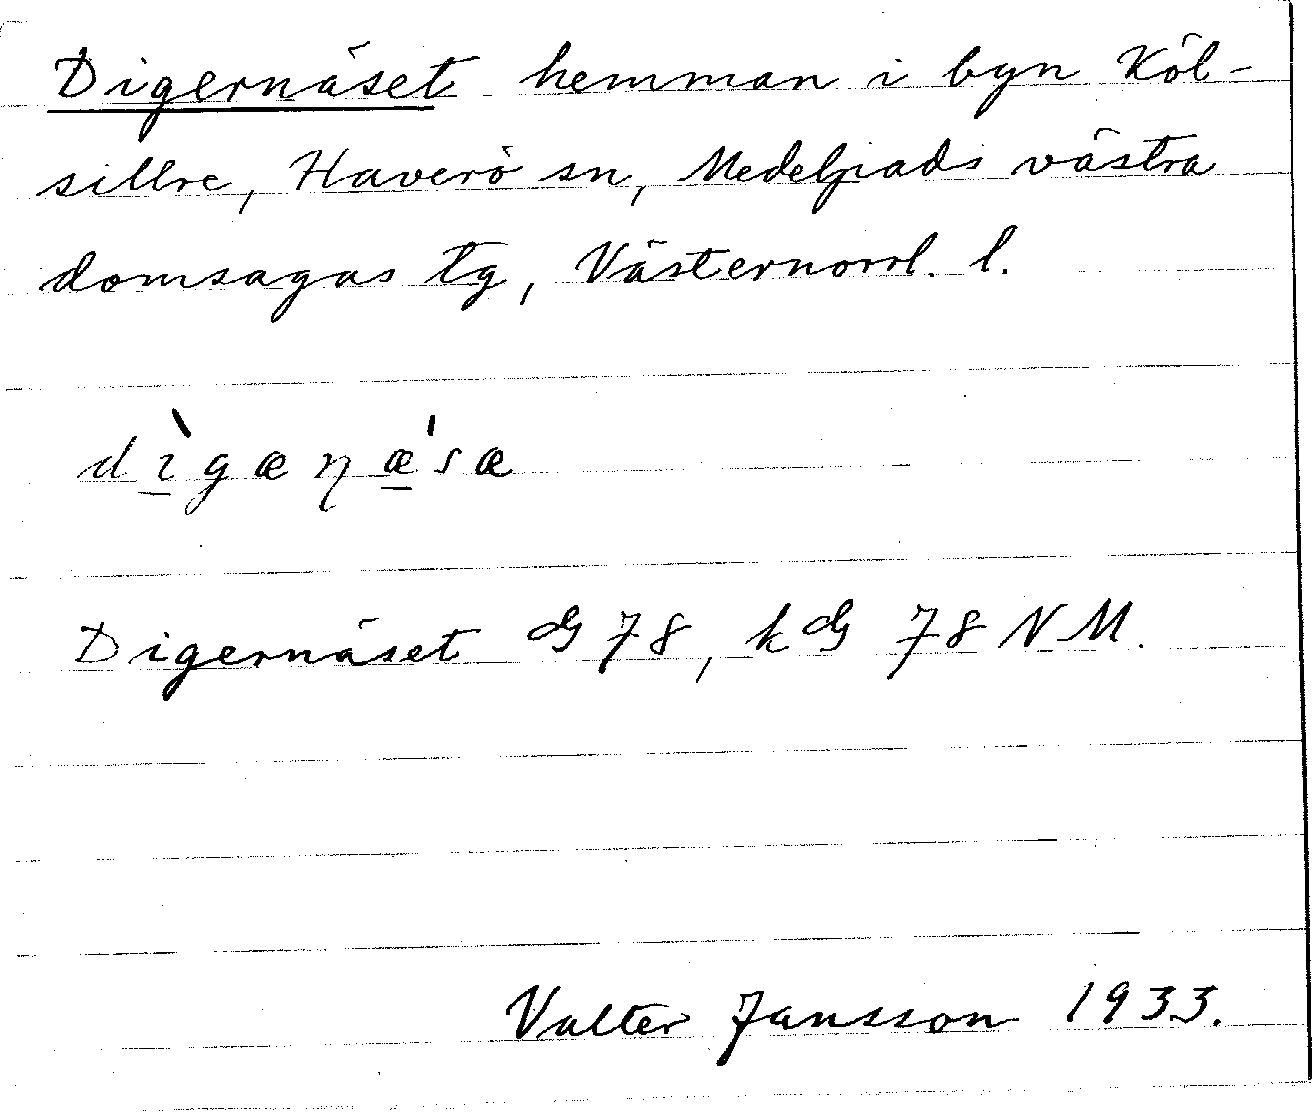 Digernäset hemman i byn Köl-
sillre, Haverö sn, Medelpads västra
domsagas tg, Västernorrl. l.
dı̀gæŋæ'sæ
Digernäset G 78, k G 78 N M.
Valter Jansson 1933.